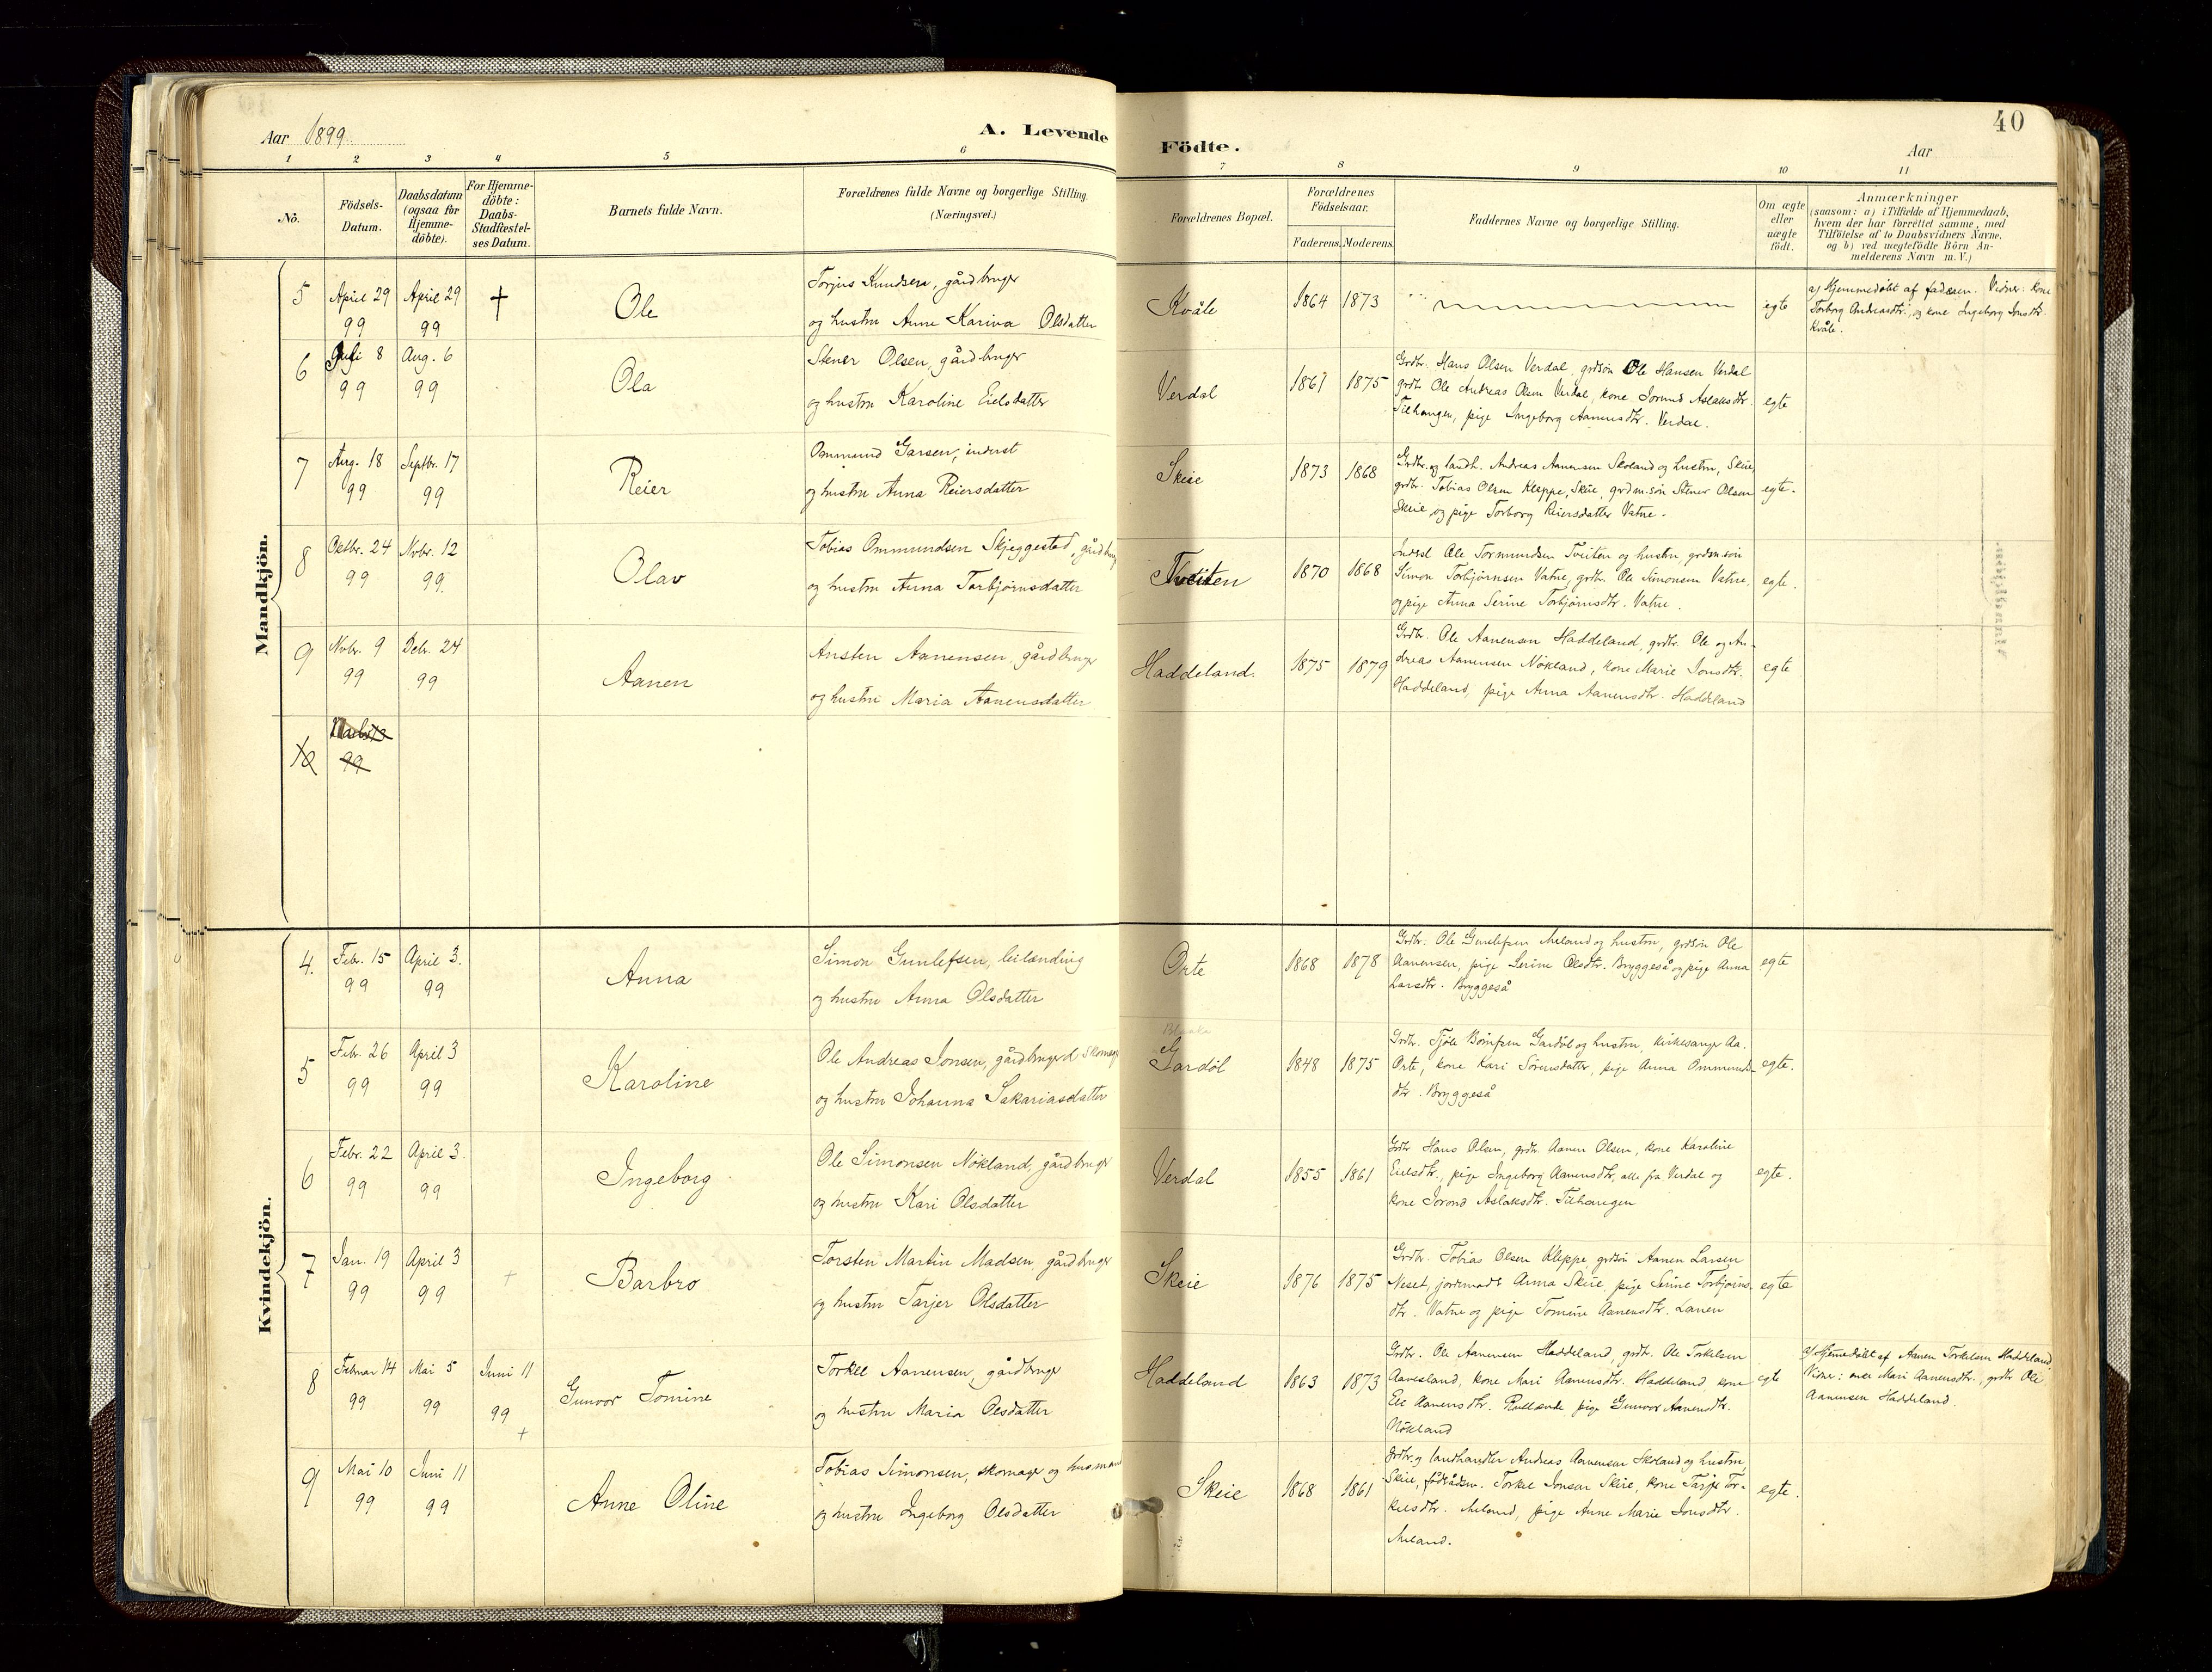 40
Aar 1899.
A. Levende Födte.
Aar
1 2 3 4 5 6 7 8 9 10 11
No.
Födsels-Datum.
Daabsdatum (ogsaa for Hjemme-döbte).
For Hjemme-döbte: Daabs-Stadfæstel-ses Datum.
Barnets fulde Navn.
Forældrenes fulde Navne og borgerlige Stilling.
(Næringsvei.)
Forældrenes Bopæl.
Forældrenes Födselsaar.
Faderens. Moderens.
Faddernes Navne og borgerlige Stilling.
Om ægte eller uægte födt.
Anmærkninger
(saasom: a) i Tilfælde af Hjemmedaab,
hvem der har forrettet samme, med
Tilföielse af to Daabsvidners Navne.
og b) ved uægtefödte Börn An-
melderens Navn m. V.)
Mandkjön.
5 April 29 April 29 † Ole
99 99
Torjus Knudsen, gårdbruger
og hustru Anne Karina Olsdatter
Kvåle 1864 1873 egte
a) Hjemmedøbt af faderen. Vidner: kone
Torborg Andreasdtr., og kone Ingeborg Jonsdtr.
Kvåle.
6 Juli 8 Aug. 6 Ola
99 99
Stener Olsen, gårdbruger
og hustru Karoline Eielsdatter
Verdal 1861 1875
Grdbr. Hans Olsen Verdal, grdsøn Ole Hansen Verdal
grdbr. Ole Andreas Olsen Verdal, kone Jorund Aslaksdtr.
Tilhangen, pige Ingeborg Aanensdtr. Verdal.
egte
7 Aug. 18 Septbr. 17 Reier
99 99
Ommund Garsen, inderst
og hustru Anna Reiersdatter
Skeie 1873 1868
Grdbr. og landh. Andreas Aanensen Skoland og hustru, Skeie,
grdbr. Tobias Olsen Kleppe, Skeie, grdm.søn Stener Olsen
Skeie og pige Torborg Reiersdatter Vatne.
egte.
8 Oktbr. 24 Novbr. 12 Olav
99 99.
Tobias Ommundsen Skjeggestad, gårdbrug
og hustru Anna Torbjørnsdatter
Tveiten 1870 1868
Inderst Ole Tormundsen Tveiten og hustru, grdm.søn
Simon Torbjørnsen Vatne, grdbr. Ole Simonsen Vatne,
og pige Anna Serine Torbjørnsdtr. Vatne.
egte.
9 Novbr. 9 Debr. 24 Aanen
99 99
Ansten Aanensen, gårdbruger
og hustru Maria Aanensdatter
Haddeland. 1875 1879
Grdbr. Ole Aanensen Haddeland, grdbr. Ole og An-
dreas Aanensen Nökland, kone Marie Jonsdtr.
Haddeland, pige Anna Aanensdtr. Haddeland
egte
10
99
Kvindekjön.
4. Febr. 15 April 3. Anna
99 99
Simon Gunlefsen, leilending
og hustru Anna Olsdatter
Orte 1868 1878
Grdbr. Ole Gunlefsen Meland og hustru, grdsøn Ole
Aanensen, pige Serine Olsdtr. Bryggeså og pige Anna
Larsdtr. Bryggeså
egte
5 Febr. 26 April 3 Karoline
99 99
Ole Andreas Jonsen, gårdbruger d skomag
og hustru Johanna Sakariasdatter
Gardöl 1848 1875
Grdbr. Tjöl Gardöl og hustru, kirkesanger Aa.
Orte, kone Kari Sörensdatter, pige Anna Ommunds-
dtr. Bryggeså
egte.
6 Febr. 22 April 3. Ingeborg
99 99
Ole Simonsen Nökland, gårdbruger
og hustru Kari Olsdatter
Verdal 1855 1861
Grdbr Hans Olsen, grdbr. Aanen Olsen, kone Karoline
Eielsdtr., pige Ingeborg Aanensdtr, alle fra Verdal og
kone Jorond Aslaksdtr. Tilhangen
egte.
7 Jan. 19 April 3 + Barbro
99 99
Torsten Martin Madsen, gårdbruger
og hustru Tarjer Olsdatter
Skeie 1876 1875
Grdbr. Tobias Olsen Kleppe, grdsøn Aanen Larsen
Neset, jordmodr Anna Skeie, pige Serine Torbjørns-
dtr. Vatne og pige Tomine Aanensdtr. Lauen
egte
8 Februar 14 Mai 5 Juni 11 Gunvor Tomine
99 99 99 +
Torkel Aanensen, gårdbruger
og hustru Maria Olsdatter
Haddeland 1863 1873
Grdbr. Ole Aanensen Haddeland, grdbr. Ole Torkelsen
Aavesland, kone Mari Aanensdtr. Haddeland kone
Eli Aanensdtr. pige Gunvor Aanensdtr.
Nökland
egte
a) Hjemmedøbt af Aanen Torkelsen Haddeland.
Vidner: Mari Aanensdtr., grdbr Ole
Aanensen Haddeland.
9 Mai 10 Juni 11 Anne Oline
99 99
Tobias Simonsen, skomager og husmand
og hustru Ingeborg Olsdatter
Skeie 1868 1861
Grdbr. og landhandler Andreas Aanensen Skoland og hustru,
Skeie, födrådsm. Torkel Jonsen Skeie, kone Tarje Tor-
kelsdtr. Meland, pige Anne Marie Jonsdtr.
Meland.
egte.